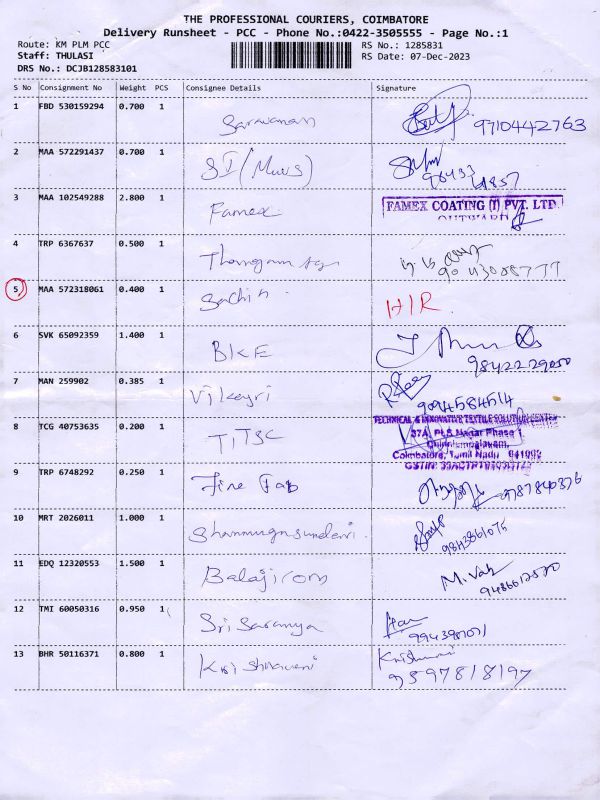 THE PROFESSIONAL COURIERS, COIMBATORE
Delivery Runsheet - PCC - Phone No.:0422-3505555 - Page No.:1
Route: KM PLM PCC RS No.: 1285831
Staff: THULASI RS Date: 07-Dec-2023
DRS No.: DCJB128583101
S No Consignment No Weight PCS Consignee Details Signature
1 FBD 530159294 0.700 1 Saravanan 9710442763
2 MAA 572291437 0.700 1
3 MAA 102549288 2.800 1 Famex FAMEX COATING (I) PVT. LTD.
OUTWARD
4 TRP 6367637 0.500 1
5 MAA 572318061 0.400 1 Sachin HIR
6 SVK 65092359 1.400 1 BKE 9842229050
7 MAN 259902 0.385 1 9094584514
8 TCG 40753635 0.200 1 TITSC TECHNICAL & INNOVATIVE TEXTILE SOLUTION CENTER
37A, PLS Nagar Phase 1
Chinniampalayam,
Coimbatore, Tamil Nadu
GSTIN:
9 TRP 6748292 0.250 1 Fine Fab 9787840376
10 MRT 2026011 1.000 1 Shanmugasundari
11 EDQ 12320553 1.500 1 Balajicom
12 TMI 60050316 0.950 1 Sri Saranya
13 BHR 50116371 0.800 1 Krishnaveni 9597818197